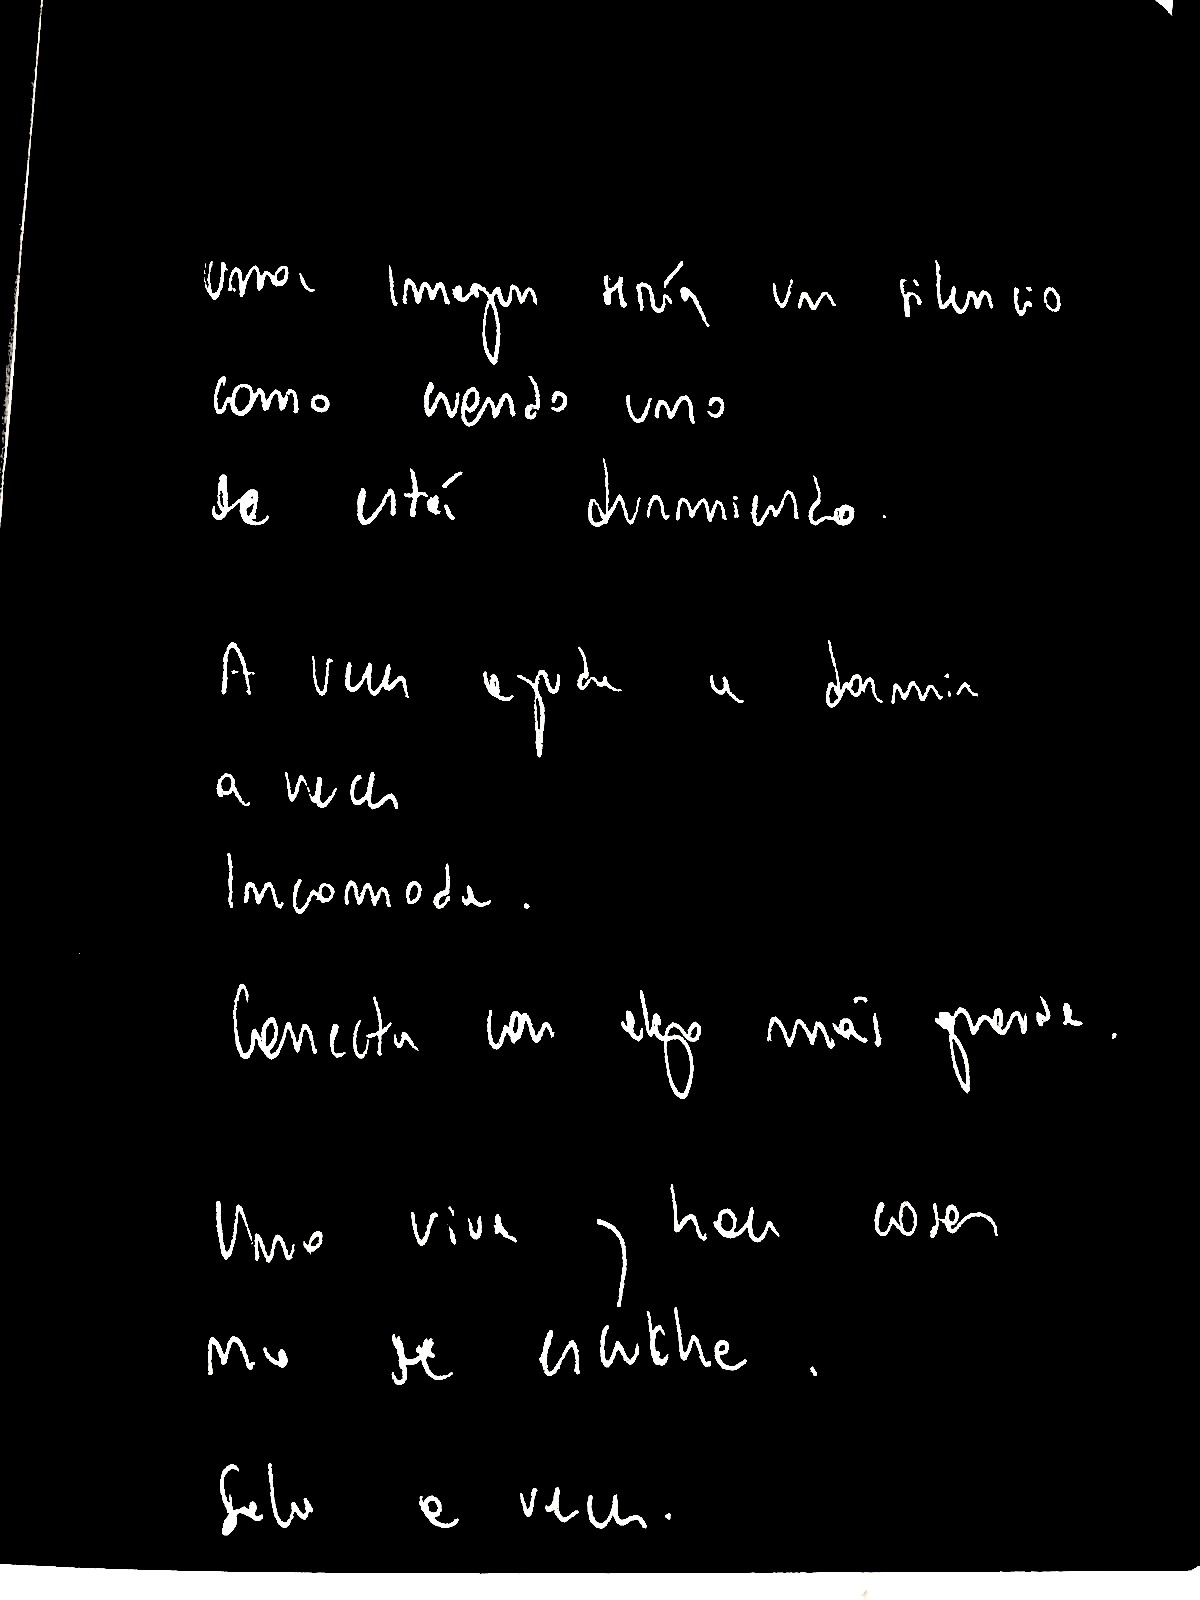 una imagen sería un silencio
como cuando uno
se está durmiendo.
A veces ayuda a dormir
a veces
Incomoda.
Conecta con algo más grande.
Uno vive y hace cosas
no se escucha.
Solo a veces.